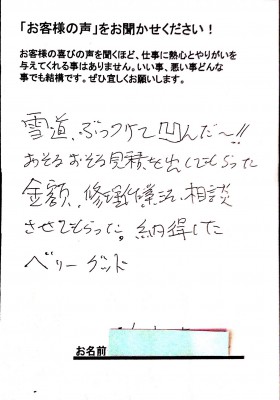 「お客様の声」をお聞かせください！
お客様の喜びの声を聞くほど、仕事に熱心とやりがいを
与えてくれる事はありません。いい事、悪い事どんな
事でも結構です。ぜひ宜しくお願いします。
雪道、ぶつけて凹んだ〜!!
おそるおそる見積を出してもらった
金額、修理作業法、相談
させてもらった。納得した
ベリーグッド
お名前